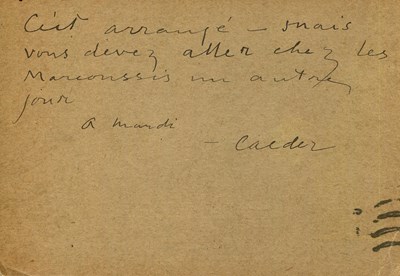 C'est arrangé — mais
vous devez aller chez les
Marcoussis un autre
jour
A mardi
— Calder